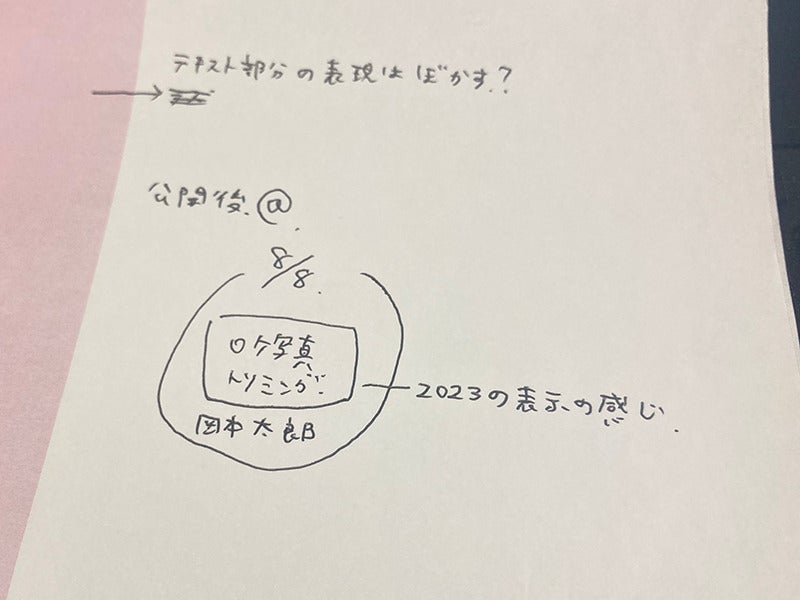 テキスト部分の表現はぼかす?
公開後.@
8/8.
ロケ写真
トリミング.
2023の表示の感じ.
岡本太郎